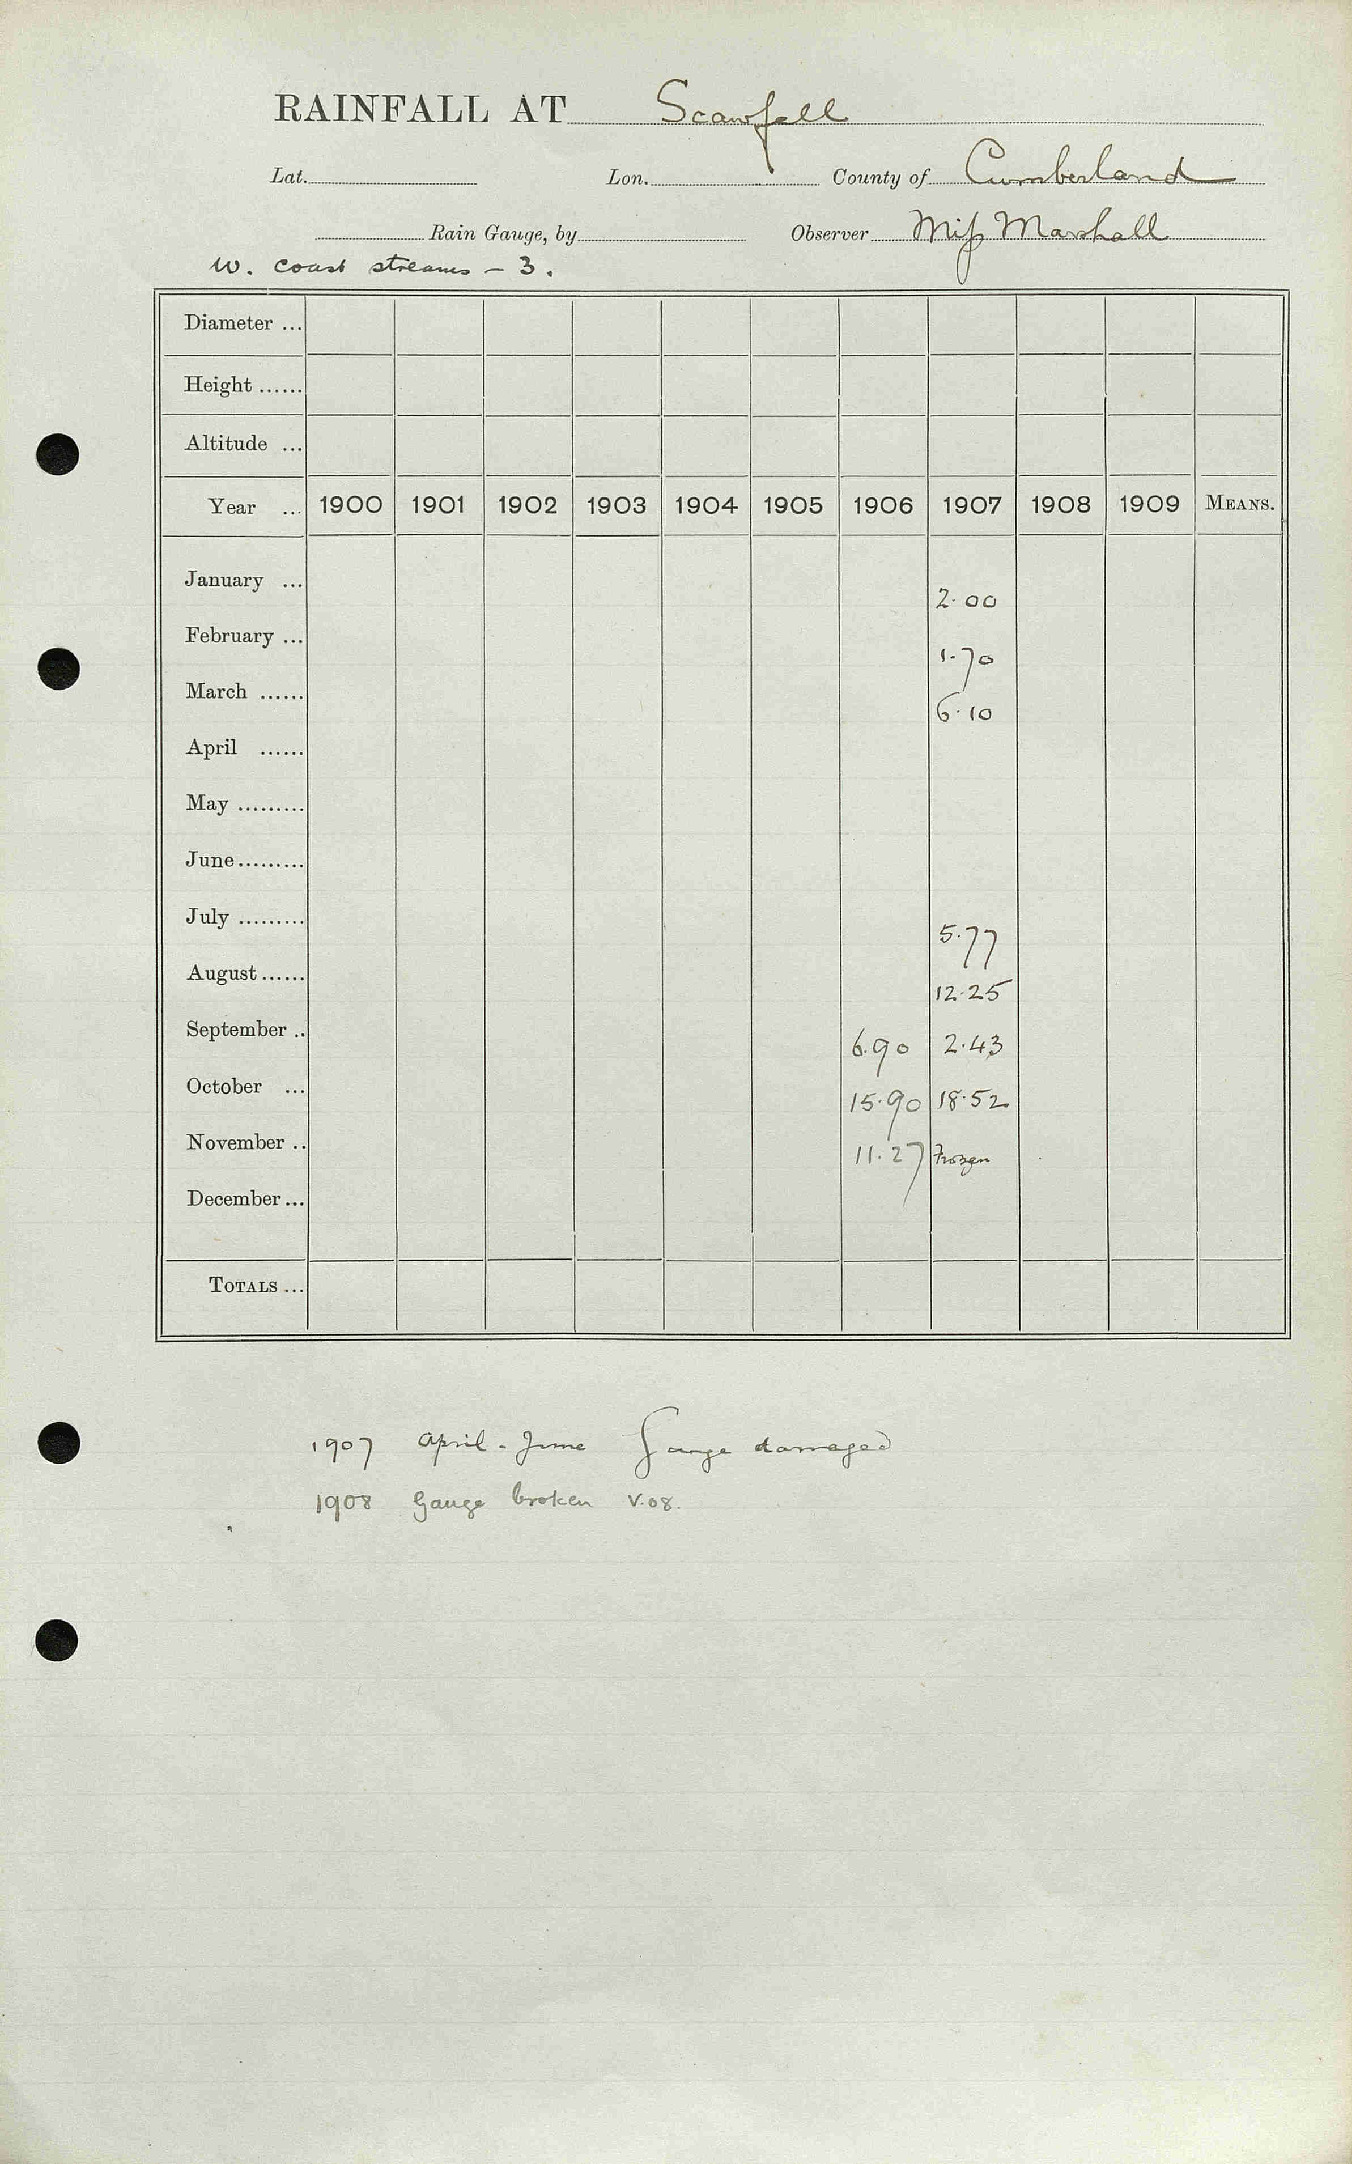 RAINFALL AT Scawfell
Lat. Lon. County of Cumberland
Rain Gauge, by Observer Miss Marshall
W. coast streams - 3.
Diameter ...
Height ......
Altitude ...
Year ... 1900 1901 1902 1903 1904 1905 1906 1907 1908 1909 MEANS.
January ...
2.00
February ...
1.70
March ......
6.10
April ......
May .........
June.........
July .........
5.77
August......
12.25
September ..
6.90 2.43
October ...
15.90 18.52
November ..
11.27 Frozen
December ...
TOTALS ...
1907 April - June Gauge damaged
1908 Gauge broken V.08.